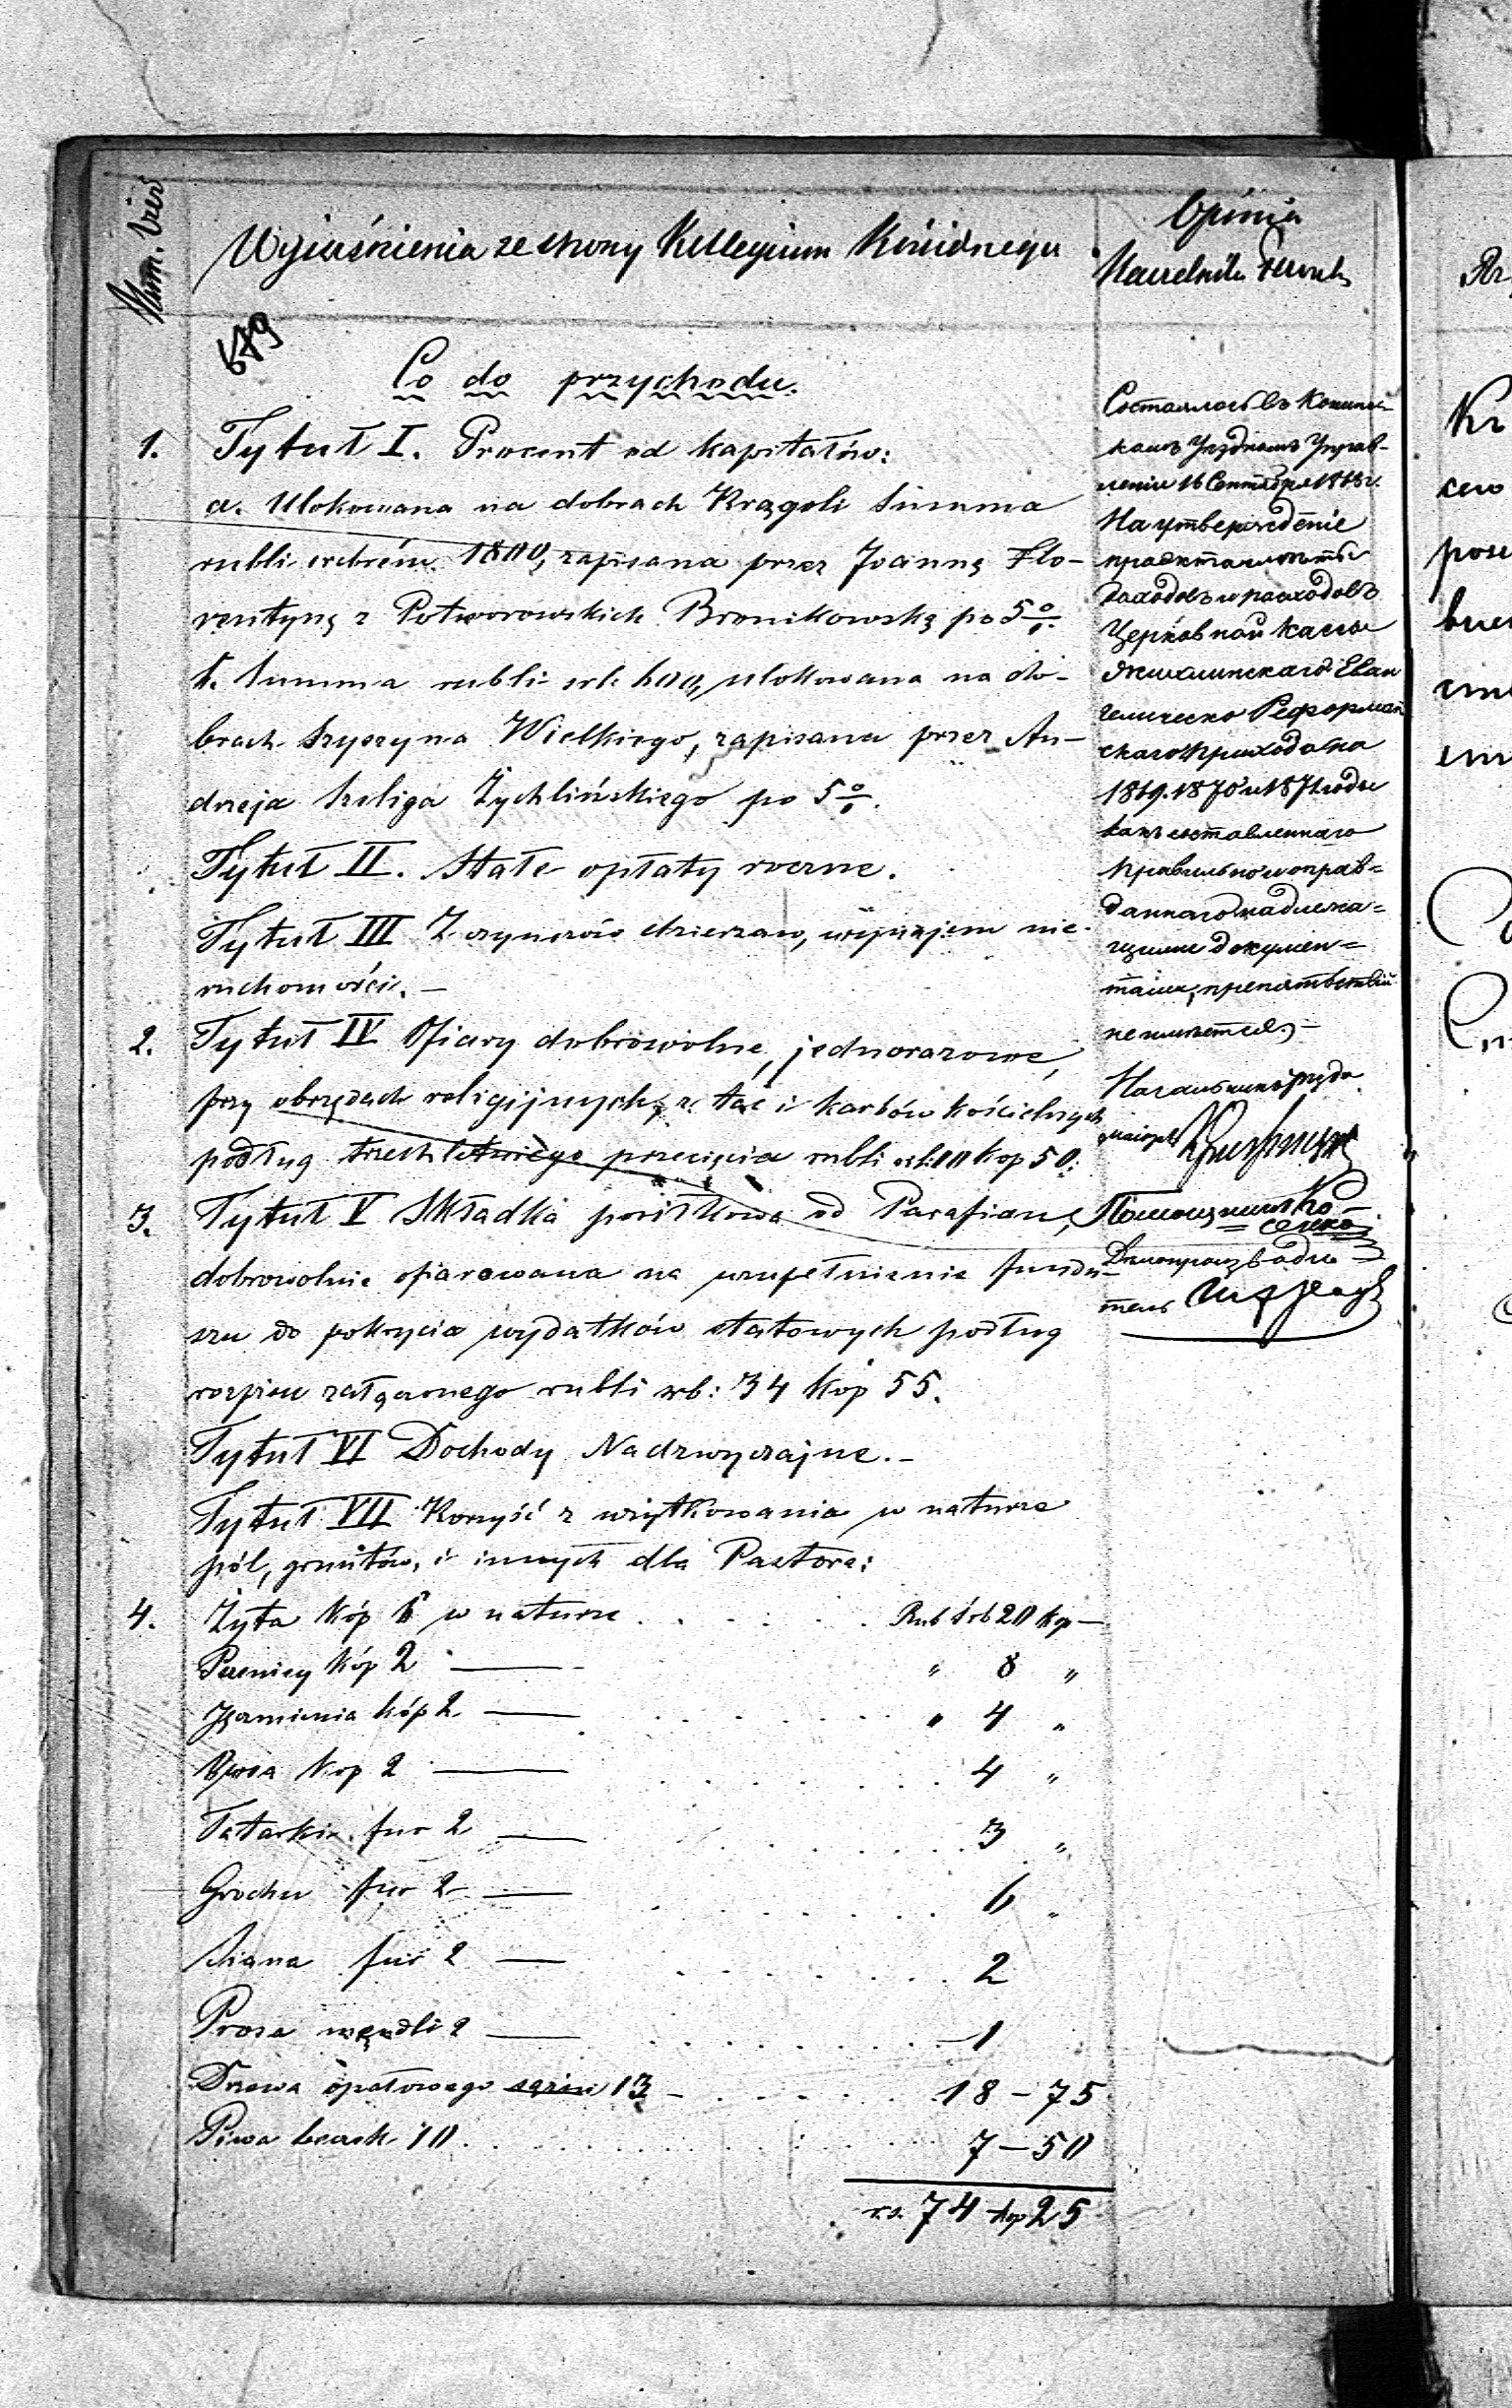 Num. Wyjaśnienia ze strony Kollegium Kościelnego
Opinia
Naczelnika Powiatu
679
Co do przychodu.
1. Tytuł I. Procent od kapitałów:
a. Ulokowana na dobrach Krągoli Summa
rubli srebrem 1800, zapisana przez Joannę Flo-
rentynę z Potworowskich Bronikowską po 5%.
b. Summa rubli srb. 600, ulokowana na do-
brach Szyszyna Wielkiego, zapisana przez An-
drzeja Szeliga Żychlińskiego po 5%.
Tytuł II. Stałe opłaty roczne.
Tytuł III Z czynszów dzierżaw, wynajem nie-
ruchomości. —
2. Tytuł IV Ofiary dobrowolne, jednorazowe,
przy obrzędach religijnych, z tac i karbów kościelnych
podług trzechletniego przecięcia rubli srb: 10 kop 50:
3. Tytuł V Składka posiłkowa od Parafian,
dobrowolnie ofiarowana na uzupełnienie fundu-
szu do pokrycia wydatków etatowych podług
rozpisu załączonego rubli srb: 34 Kop 55.
Tytuł VI Dochody Nadzwyczajne. —
Tytuł VII Korzyść z użytkowania w naturze
pól, gruntów, i innych dla Pastora:
4. Żyta kóp 6 w naturze . . . . . . Rub srb 20 kop —
Pszenicy kóp 2 — " 8 "
Jęczmienia kóp 2 — . . . . . . " 4 "
Owsa kop 2 — . . . . . . 4 "
Tatarki fur 2 — . . . . . . 3 "
Grochu fur 2 — . . . . . . 6 "
Siana fur 2 — . . . . . . 2
Prosa mędli 2 — . . . . . . 1
Drzewa opałowego sążni 13 — . . . . . 18 — 75
Piwa beczek 10 . . . . . . 7 — 50
r.s. 74 kop 25
Состоялось въ Конинс-
комъ Уѣздномъ Управ-
леніи 16 Сентября
На утвержденіе
проэкта сметы
доходовъ и расходовъ
Церковной кассы
Жихлинскаго Еван
гелическо Реформат
скаго прихода на
1869. 1870 и 1871 годы
какъ составленнаго
правильно и оправ=
даннаго надлежа=
щими докумен=
тами, препятствій
не имѣется, —
Начальникъ уѣзда
маіоръ
Помощникъ
Дѣлопроизводи-
тель